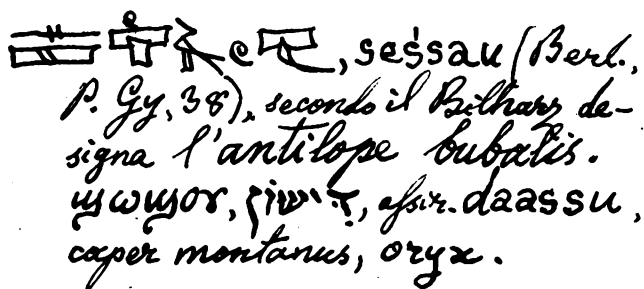 , seśsau (Berl.,
P. Gy, 38), secondo il Bilharz de-
signa l'antilope bubalis.
ϣⲱϣⲟⲩ, דישון, assir. daassu,
caper montanus, oryx.